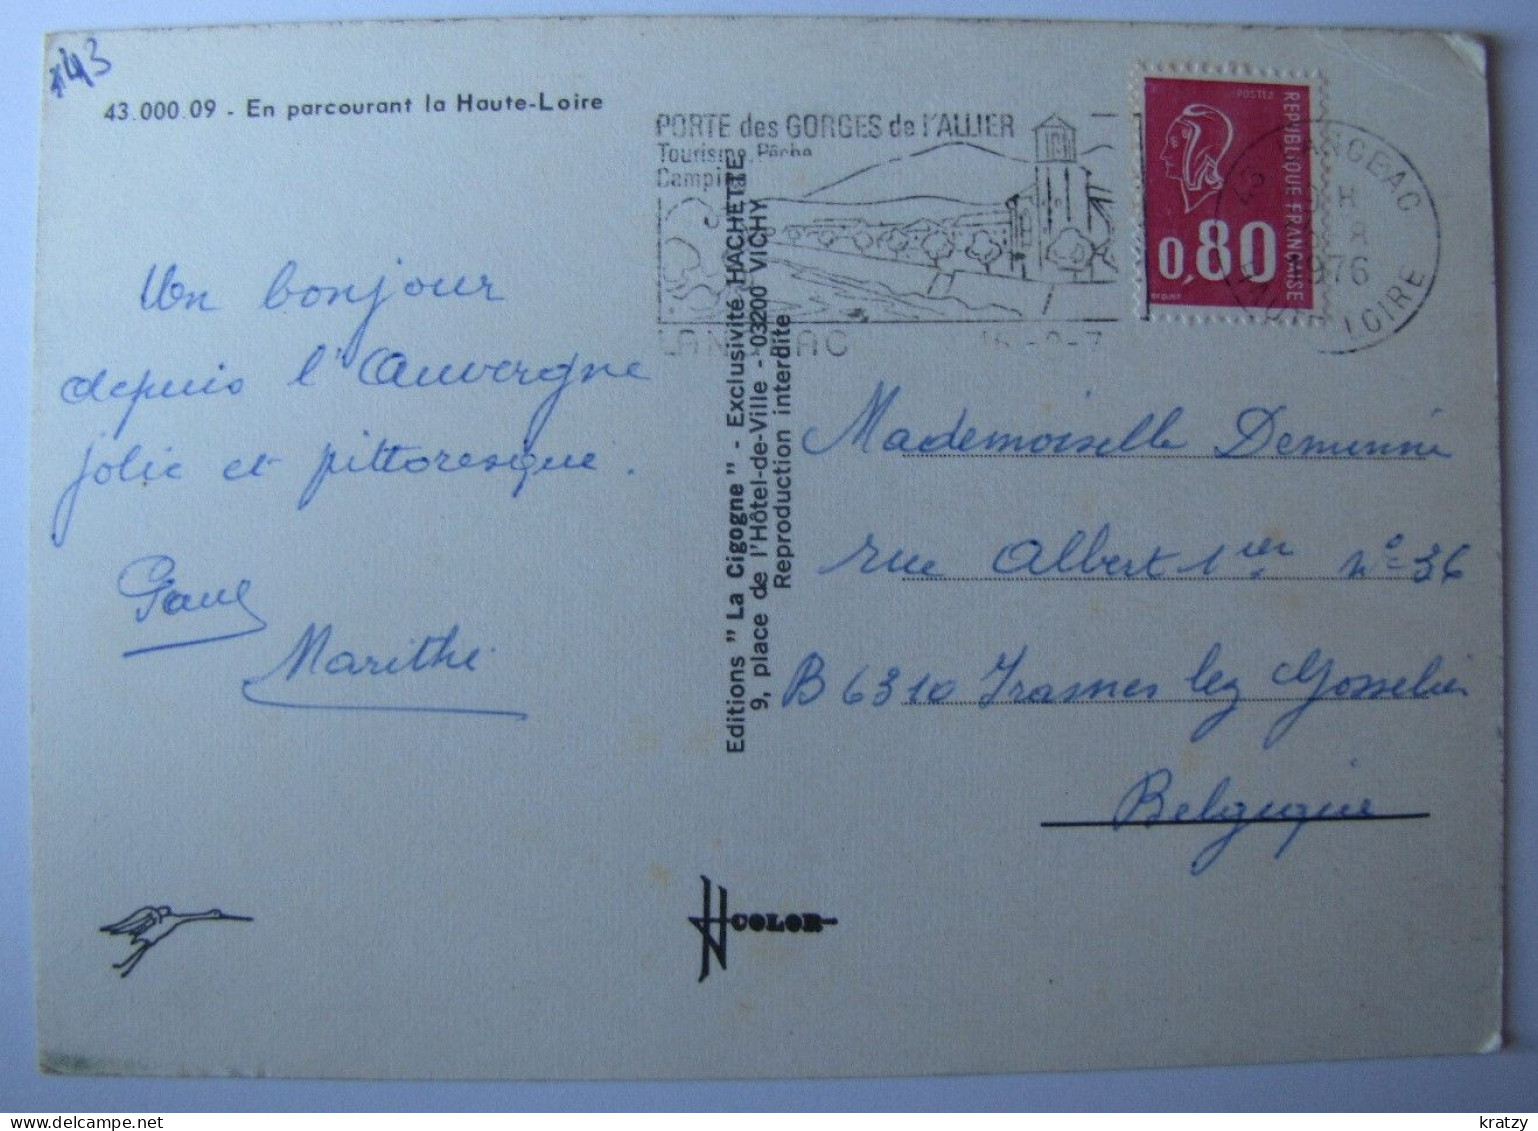 *43
43.000.09 - En parcourant la Haute-Loire
PORTE des GORGES de l'ALLIER
Tourisme Pêche
Camping
LANGEAC
POSTES
REPUBLIQUE FRANÇAISE
0,80
43 LANGEAC
1976
HAUTE LOIRE
Un bonjour
depuis l'Auvergne
jolie et pittoresque.
Paul
Marithé
Editions " La Cigogne " - Exclusivité HACHETTE
9, place de l'Hôtel-de-Ville - 03200 VICHY
Reproduction interdite
Mademoiselle
rue Albert 1er n° 36
B 6310 Frasnes lez Gosselies
Belgique
COLOR
kratzy